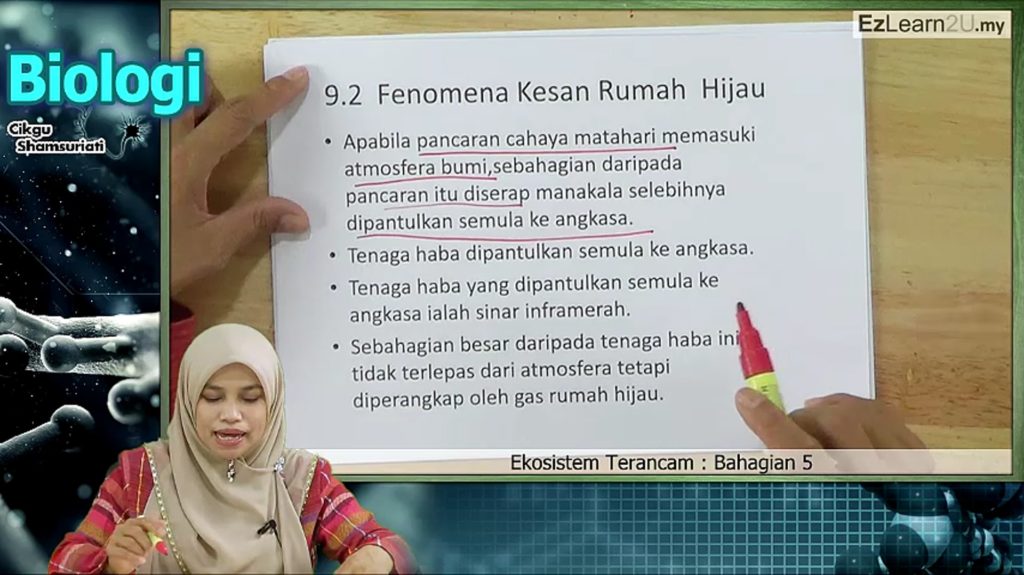 EzLearn2U.my
Biologi
Cikgu
Shamsuriati
9.2 Fenomena Kesan Rumah Hijau
• Apabila pancaran cahaya matahari memasuki
atmosfera bumi,sebahagian daripada
pancaran itu diserap manakala selebihnya
dipantulkan semula ke angkasa.
• Tenaga haba dipantulkan semula ke angkasa.
• Tenaga haba yang dipantulkan semula ke
angkasa ialah sinar inframerah.
• Sebahagian besar daripada tenaga haba ini
tidak terlepas dari atmosfera tetapi
diperangkap oleh gas rumah hijau.
Ekosistem Terancam : Bahagian 5